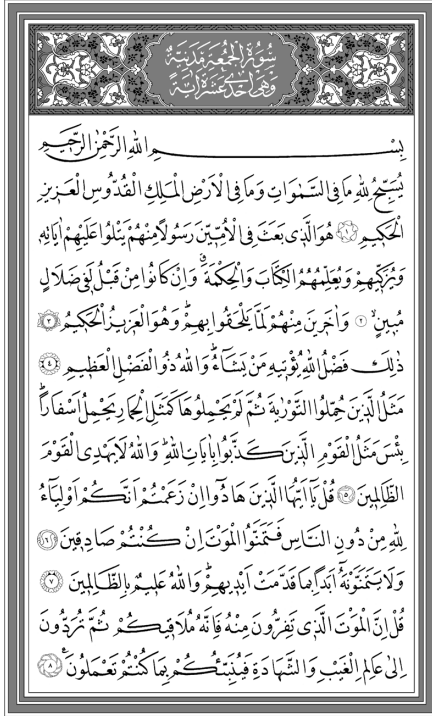 سُورَةُ الْجُمُعَةِ مَدَنِيَّةٌ
وَهِيَ اِحْدٰى عَشْرَةَ اٰيَةً
بِسْمِ اللّٰهِ الرَّحْمٰنِ الرَّحٖيمِ
يُسَبِّحُ لِلّٰهِ مَا فِى السَّمٰوَاتِ وَمَا فِى الْاَرْضِ الْمَلِكِ الْقُدُّوسِ الْعَزٖيزِ
الْحَكٖيمِ ﴿١﴾ هُوَ الَّذٖى بَعَثَ فِى الْاُمِّيّٖنَ رَسُولًا مِنْهُمْ يَتْلُوا عَلَيْهِمْ اٰيَاتِهٖ
وَيُزَكّٖيهِمْ وَيُعَلِّمُهُمُ الْكِتَابَ وَالْحِكْمَةَ وَاِنْ كَانُوا مِنْ قَبْلُ لَفٖى ضَلَالٍ
مُبٖينٍ ﴿٢﴾ وَاٰخَرٖينَ مِنْهُمْ لَمَّا يَلْحَقُوا بِهِمْ وَهُوَ الْعَزٖيزُ الْحَكٖيمُ ﴿٣﴾
ذٰلِكَ فَضْلُ اللّٰهِ يُؤْتٖيهِ مَنْ يَشَٓاءُ وَاللّٰهُ ذُو الْفَضْلِ الْعَظٖيمِ ﴿٤﴾
مَثَلُ الَّذٖينَ حُمِّلُوا التَّوْرٰيةَ ثُمَّ لَمْ يَحْمِلُوهَا كَمَثَلِ الْحِمَارِ يَحْمِلُ اَسْفَارًا
بِئْسَ مَثَلُ الْقَوْمِ الَّذٖينَ كَذَّبُوا بِاٰيَاتِ اللّٰهِ وَاللّٰهُ لَا يَهْدِى الْقَوْمَ
الظَّالِمٖينَ ﴿٥﴾ قُلْ يَٓا اَيُّهَا الَّذٖينَ هَادُٓوا اِنْ زَعَمْتُمْ اَنَّكُمْ اَوْلِيَٓاءُ
لِلّٰهِ مِنْ دُونِ النَّاسِ فَتَمَنَّوُا الْمَوْتَ اِنْ كُنْتُمْ صَادِقٖينَ ﴿٦﴾
وَلَا يَتَمَنَّوْنَهُٓ اَبَدًا بِمَا قَدَّمَتْ اَيْدٖيهِمْ وَاللّٰهُ عَلٖيمٌ بِالظَّالِمٖينَ ﴿٧﴾
قُلْ اِنَّ الْمَوْتَ الَّذٖى تَفِرُّونَ مِنْهُ فَاِنَّهُ مُلَاقٖيكُمْ ثُمَّ تُرَدُّونَ
اِلٰى عَالِمِ الْغَيْبِ وَالشَّهَادَةِ فَيُنَبِّئُكُمْ بِمَا كُنْتُمْ تَعْمَلُونَ ﴿٨﴾